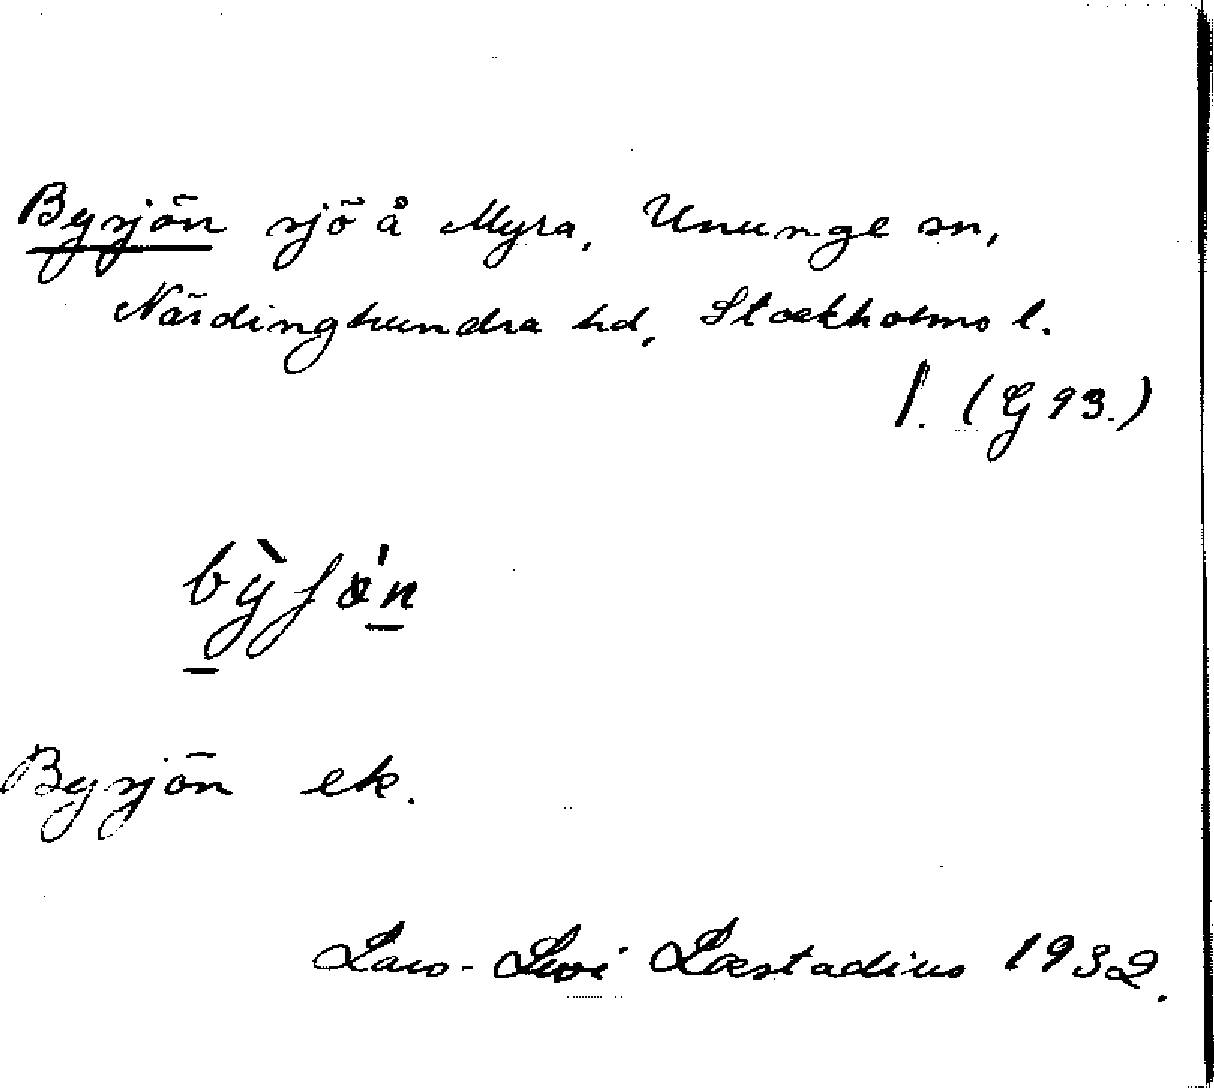 Bysjön sjö å Myra, Ununge sn,
Närdinghundra hd, Stockholms l.
1. (G 93.)
bỳʃǿn
Bysjön ek.
Lars-Levi Læstadius 1932.